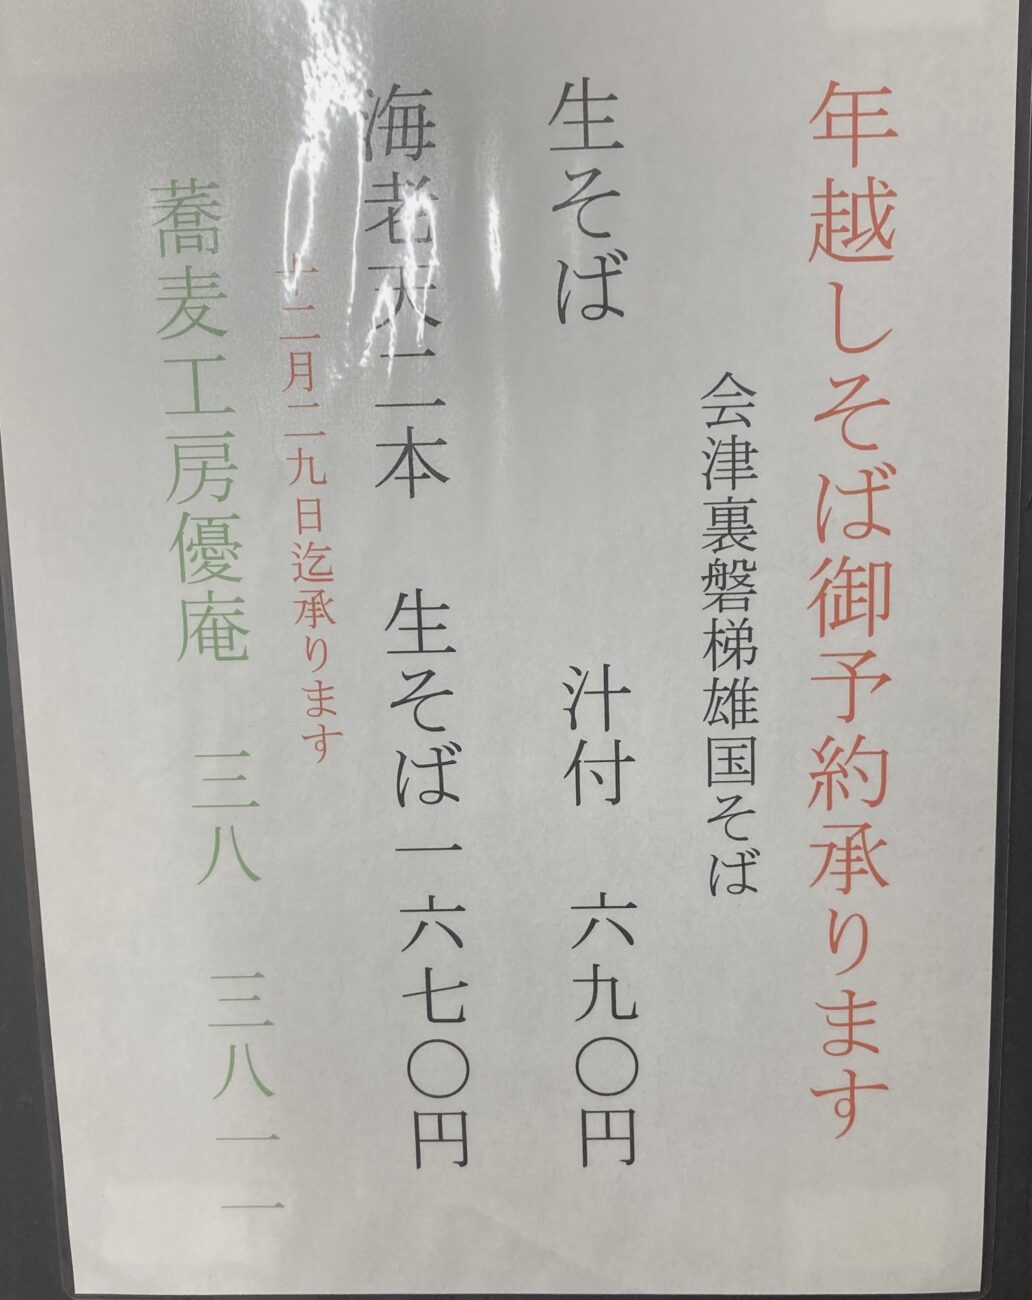 年越しそば御予約承ります
会津裏磐梯雄国そば
生そば　汁付　六九〇円
海老天二本　生そば一六七〇円
十二月二九日迄承ります
蕎麦工房優庵　三八　三八一一